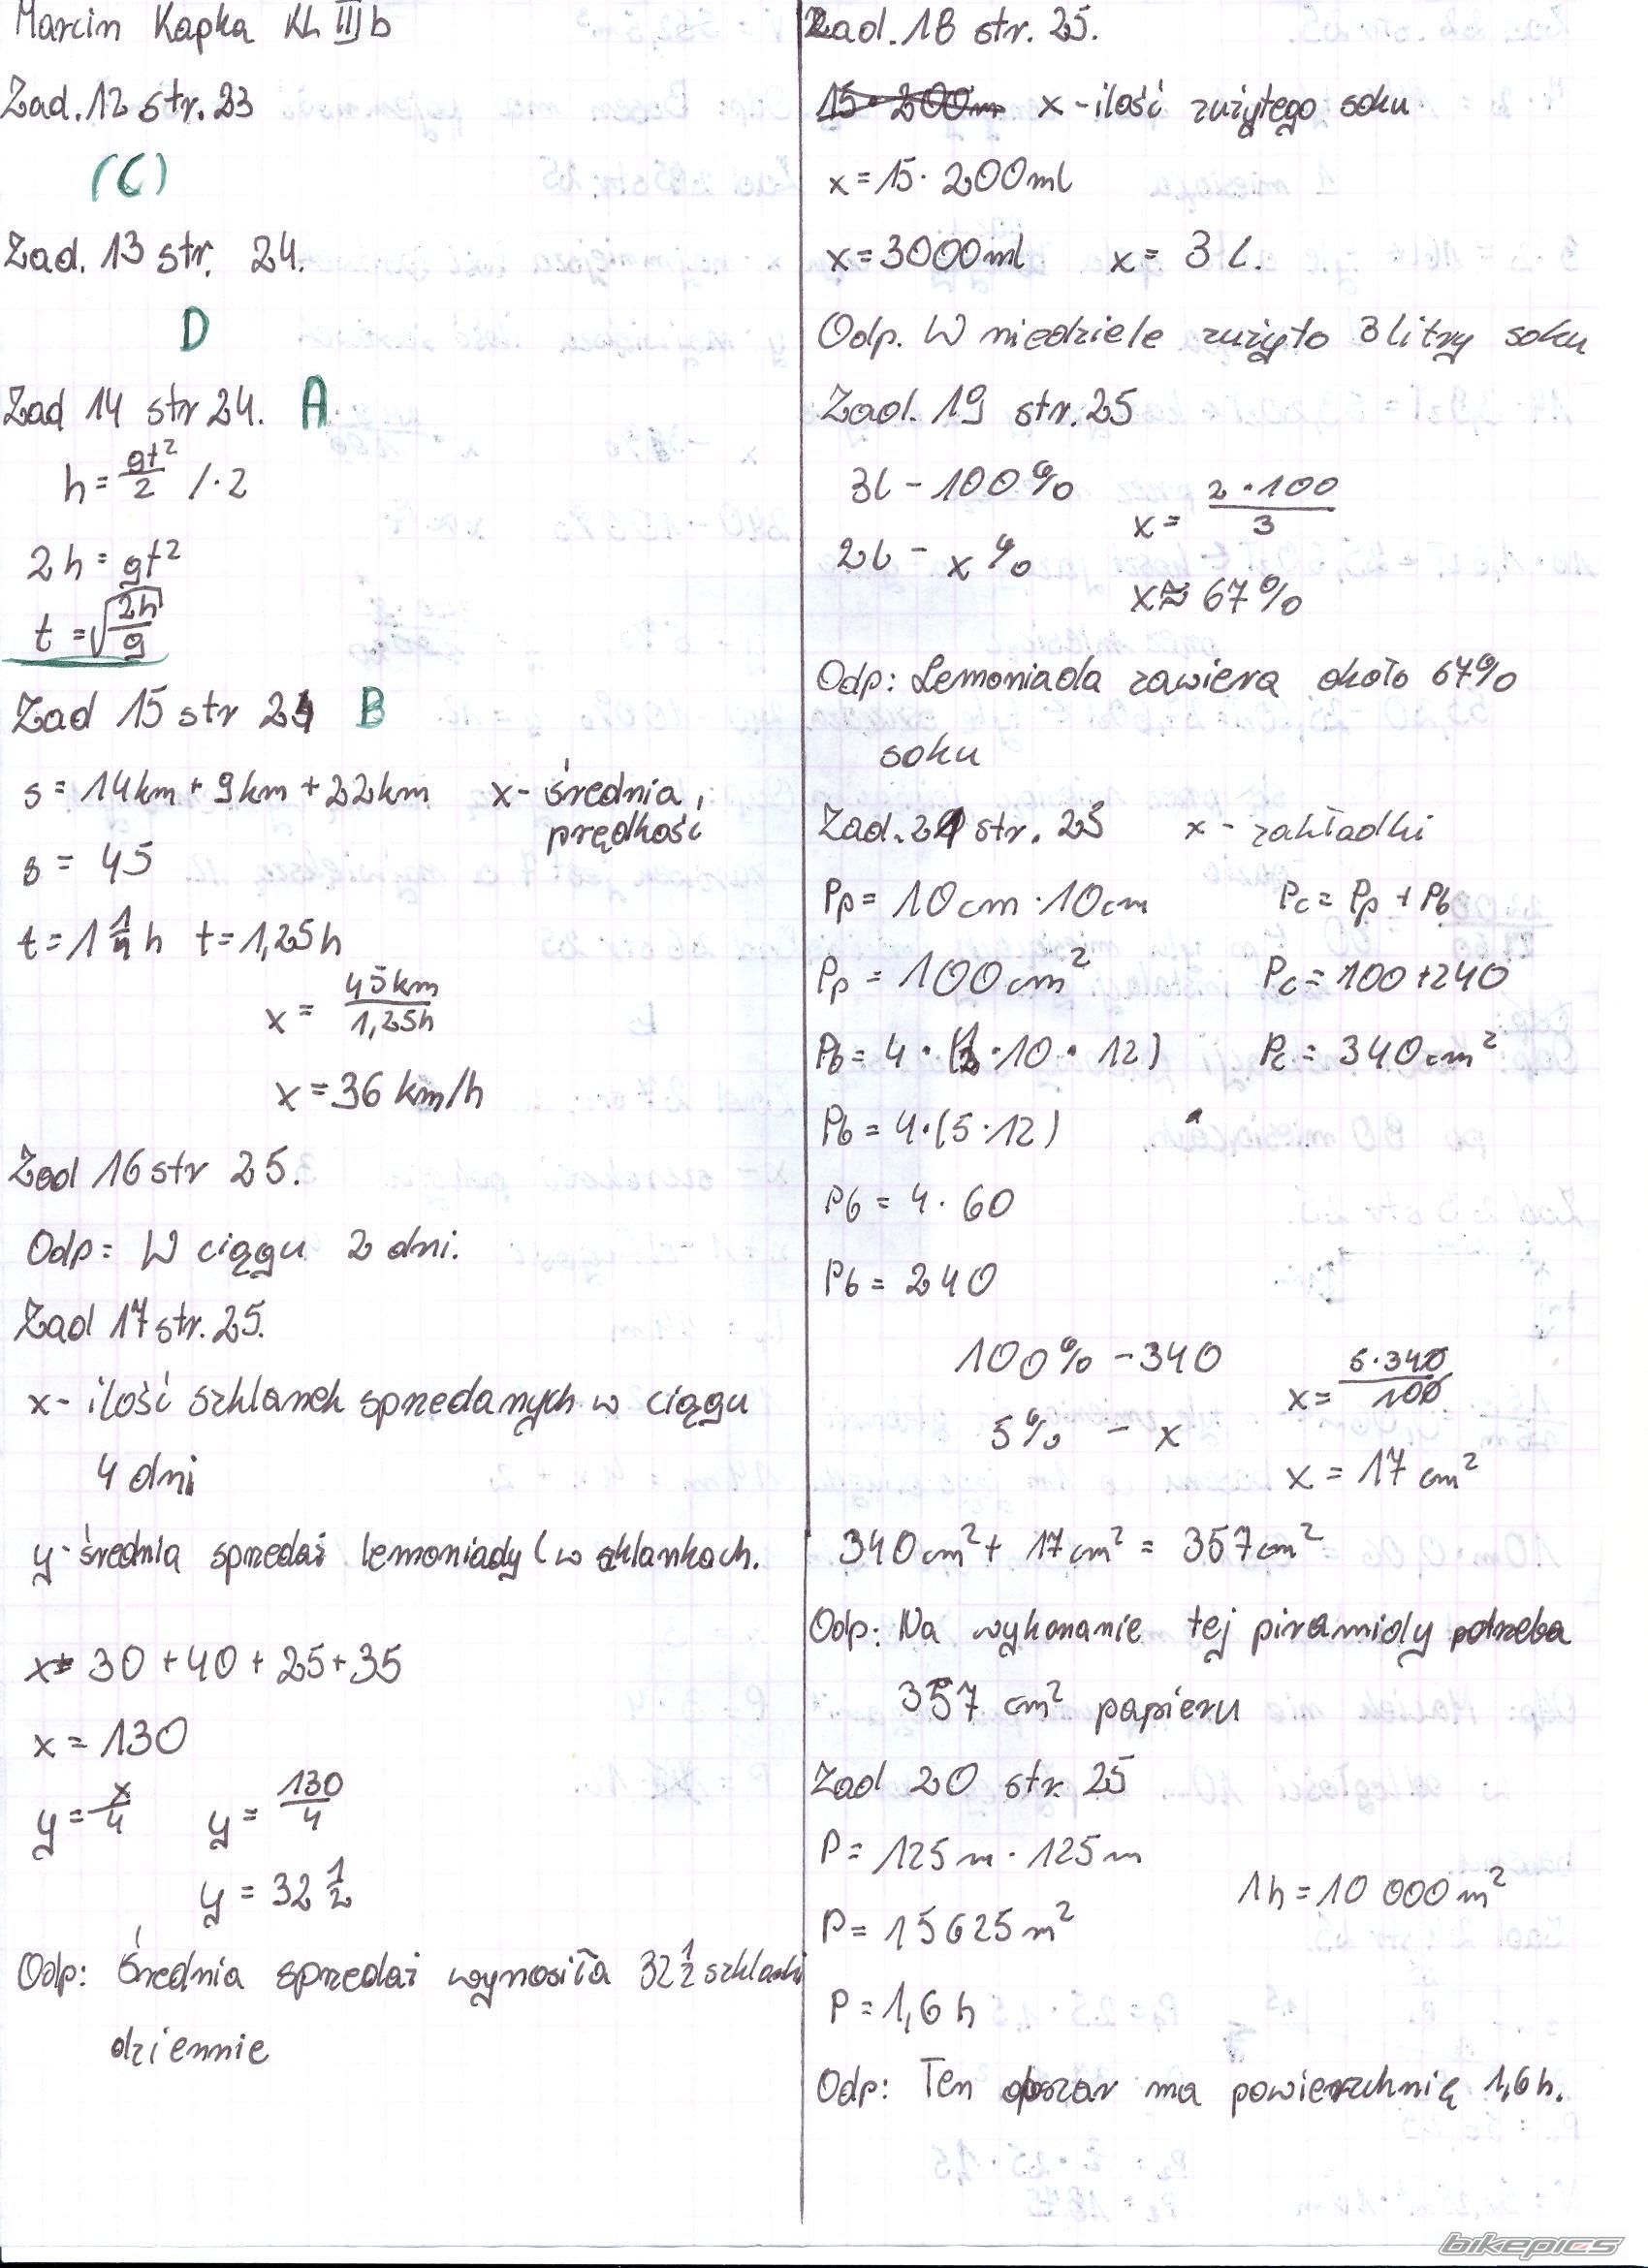 Marcin Kapka Kl. III b
Zad. 12 str. 23
(C)
Zad. 13 str. 24.
D
Zad 14 str 24. A
h = gt²/2 /·2
2h = gt²
t = √(2h/g)
Zad 15 str 24 B
s = 14km + 9km + 22km x - średnia
prędkość
s = 45
t = 1 1/4 h t = 1,25h
x = 45km/1,25h
x = 36 km/h
Zad 16 str 25.
Odp: W ciągu 2 dni.
Zad 17 str. 25.
x - ilość szklanek sprzedanych w ciągu
4 dni
y - średnia sprzedaż lemoniady (w szklankach.
x = 30 + 40 + 25 + 35
x = 130
y = x/4 y = 130/4
y = 32 1/2
Odp: Średnia sprzedaż wynosiła 32 1/2 szklanki
dziennie
Zad. 18 str. 25.
15 · 200m x - ilość zużytego soku
x = 15 · 200ml
x = 3000ml x = 3 l.
Odp. W niedziele zużyto 3 litry soku
Zad. 19 str. 25
3l - 100%
2l - x%
x = 2·100/3
x ≈ 67%
Odp: Lemoniada zawiera około 67%
soku
Zad. 21 str. 25 x - zakładki
Pp = 10cm · 10cm Pc = Pp + Pb
Pp = 100cm² Pc = 100+240
Pb = 4 · (1/2 · 10 · 12) Pc = 340cm²
Pb = 4·(5·12)
Pb = 4 · 60
Pb = 240
100% - 340
5% - x
x = 5·340/100
x = 17 cm²
340cm² + 17cm² = 357cm²
Odp: Na wykonanie tej piramidy potrzeba
357 cm² papieru
Zad 20 str. 25
P = 125m · 125m
1h = 10 000m²
P = 15625m²
P = 1,6 h
Odp: Ten obszar ma powierzchnię 1,6h.
bikepics